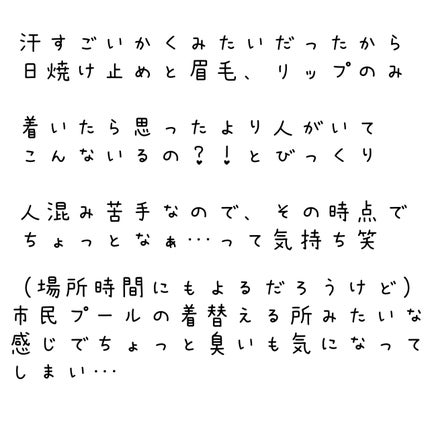 汗すごいかくみたいだったから
日焼け止めと眉毛、リップのみ
着いたら思ったより人がいて
こんないるの?!とびっくり
人混み苦手なので、その時点で
ちょっとなぁ…って気持ち笑
(場所時間にもよるだろうけど)
市民プールの着替える所みたいな
感じでちょっと臭いも気になって
しまい…